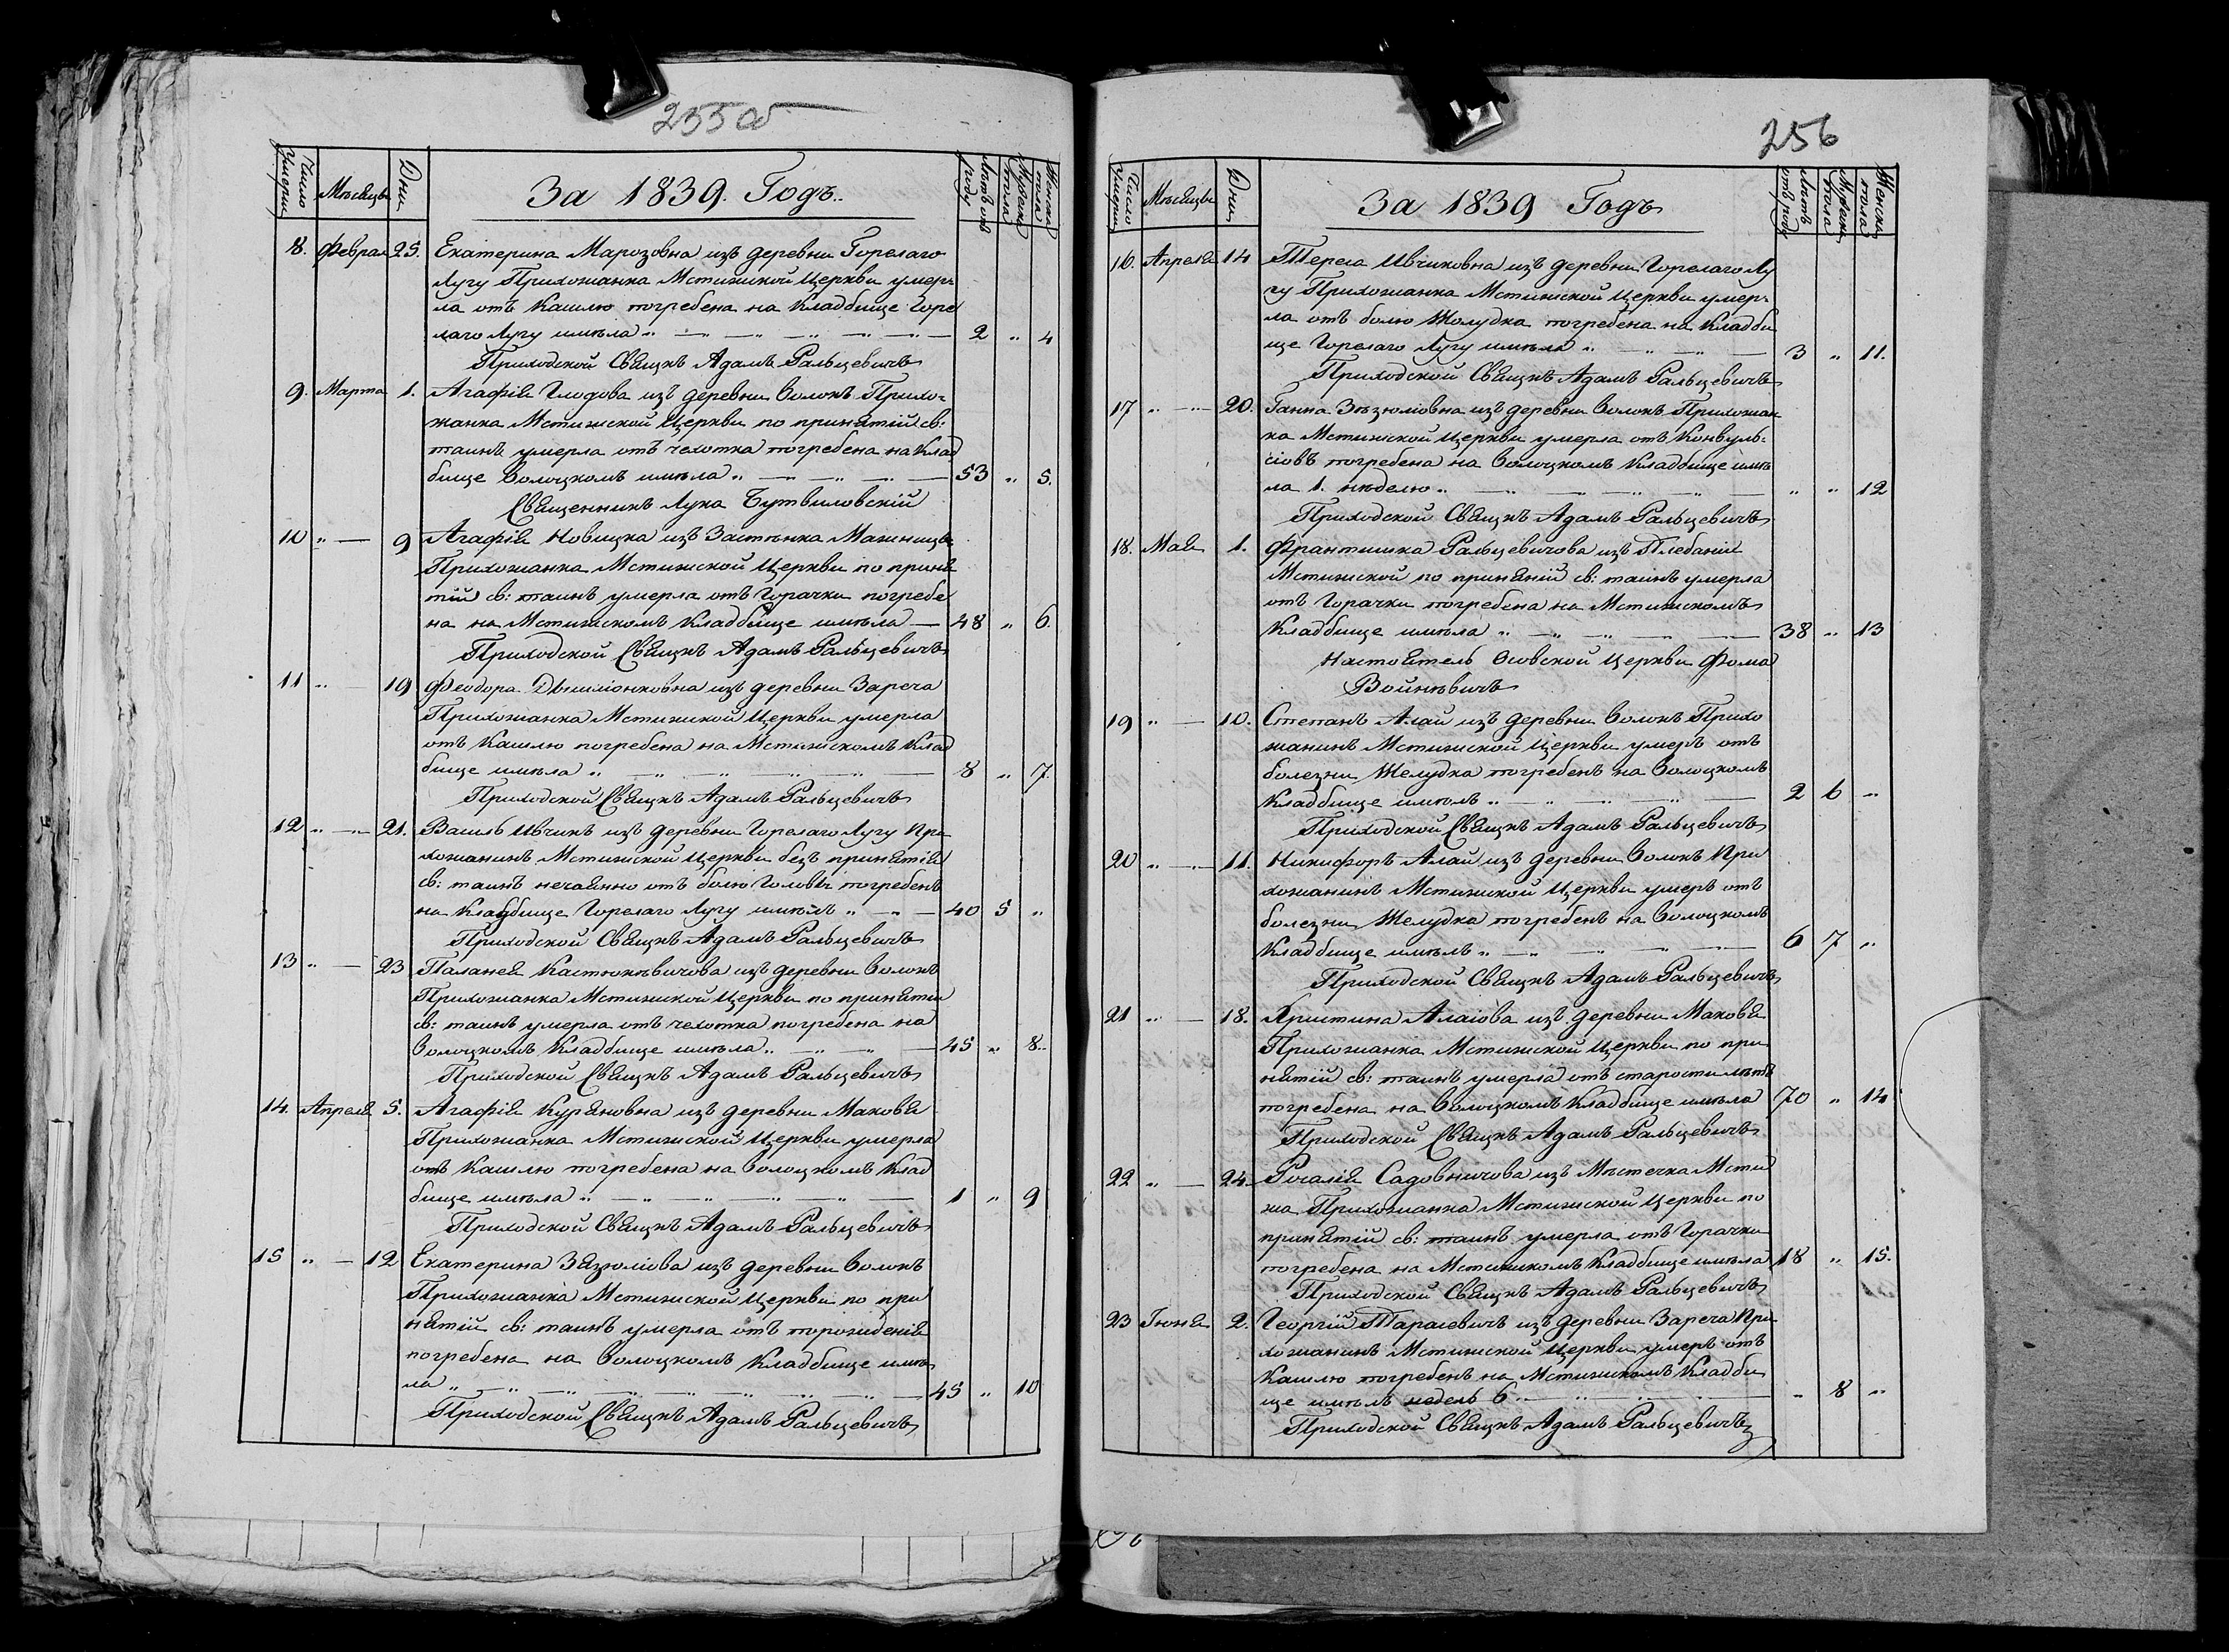 255 об
Число умерши
Мѣсяцы
Дни
За 1839. Годъ.
Лѣтъ отъ роду
Мужеска пола
Женска пола
8. Феврал 25. Екатерина Марозовна изъ деревни Горелаго
Лугу Прихожанка Мстижской Церкви умер-
ла отъ Кашлю погребена на Кладбище Горе
лаго Лугу имѣла „ 2 „ 4
Приходской Свящкъ Адамъ Ральцевичъ
9. Марта 1. Агафія Глодова изъ деревни Волокъ Прихо-
жанка Мстижской Церкви по принятій св:
таинъ умерла отъ чехотка погребена на Клад
бище Волоцкомъ имѣла „ 53 „ 5.
Священникъ Лука Бутвиловскій
10 „ 9 Агафія Новицка изъ Застѣнка Мажницы
Прихожанка Мстижской Церкви по приня
тій св: таинъ умерла отъ Горачки погребе
на на Мстижскомъ Кладбище имѣла 48 „ 6.
Приходской Свящкъ Адамъ Ральцевичъ
11 „ 19 Феодора Дымшонковна изъ деревни Зареча
Прихожанка Мстижской Церкви умерла
отъ Кашлю погребена на Мстижскомъ Клад
бище имѣла „ 8 „ 7.
Приходской Свящкъ Адамъ Ральцевичъ
12 „ 21. Василь Ивчикъ изъ деревни Горелаго Лугу При
хожанинъ Мстижской Церкви безъ принятія
св: таинъ нечаянно отъ болю Головы погребенъ
на Кладбище Горелаго Лугу имѣлъ „ 40 5 „
Приходской Свящкъ Адамъ Ральцевичъ
13 „ 23 Паланея Кастюкѣвичова изъ деревни Волокъ
Прихожанка Мстижской Церкви по принятіи
св: таинъ умерла отъ чехотка погребена на
Волоцкомъ Кладбище имѣла „ 45 „ 8.
Приходской Свящкъ Адамъ Ральцевичъ
14. Апреля 5. Агафія Куряновна изъ деревни Маковя
Прихожанка Мстижской Церкви умерла
отъ Кашлю погребена на Волоцкомъ Клад
бище имѣла „ 1 „ 9
Приходской Свящкъ Адамъ Ральцевичъ
15 „ 12 Екатерина Зязюліова изъ деревни Волокъ
Прихожанка Мстижской Церкви по при
нятій св: таинъ умерла отъ порожденія
погребена на Волоцкомъ Кладбище имѣ
ла „ 45 „ 10
Приходской Свящкъ Адамъ Ральцевичъ
256
Число умерши
Мѣсяцы
Дни
За 1839 Годъ
Лѣтъ отъ роду
Мужеска пола
Женска пола
16. Апреля 14 Тереса Ивчиковна изъ деревни Горелаго Лу
гу Прихожанка Мстижской Церкви умер-
ла отъ болю Жолудка погребена на Кладби
ще Горелаго Лугу имѣла „ 3 „ 11.
Приходской Свящкъ Адамъ Ральцевичъ
17 „ 20. Ганна Зѣзюліовна изъ деревни Волокъ Прихожан
ка Мстижской Церкви умерла отъ Конвуль-
сіовъ погребена на Волоцкомъ Кладбище имѣ
ла 1. нѣделю „ „ „ 12
Приходской Свящкъ Адамъ Ральцевичъ
18. Мая 1. Франтишка Ральцевичова изъ Плебаніи
Мстижской по приняній св: таинъ умерла
отъ Горачки погребена на Мстижскомъ
Кладбище имѣла „ 38 „ 13
Настоятель Осовской Церкви Фома
Войнѣвичъ
19 „ 10. Степанъ Алай изъ деревни Волокъ Прихо
жанинъ Мстижской Церкви умеръ отъ
болезни Желудка погребенъ на Волоцкомъ
Кладбище имѣлъ „ 2 6 „
Приходской Свящкъ Адамъ Ральцевичъ
20 „ 11. Никифоръ Алай изъ деревни Волокъ При
хожанинъ Мстижской Церкви умеръ отъ
болезни Желудка погребенъ на Волоцкомъ
Кладбище имѣлъ „ 6 7 „
Приходской Свящкъ Адамъ Ральцевичъ
21 „ 18. Христина Алаіова изъ деревни Маковя
Прихожанка Мстижской Церкви по при
нятій св: таинъ умерла отъ старости лѣтъ
погребена на Волоцкомъ Кладбище имѣла 70 „ 14
Приходской Свящкъ Адамъ Ральцевичъ
22 „ 24. Росалія Садовничова изъ Мѣстечка Мсти
жа Прихожанка Мстижской Церкви по
принятій св: таинъ умерла отъ Горачки
погребена на Мстижкомъ Кладбище имѣла 18 „ 15.
Приходской Свящкъ Адамъ Ральцевичъ
23 Іюня 2. Георгій Тарасевичъ изъ деревни Зареча При
хожанинъ Мстижской Церкви умеръ отъ
Кашлю погребенъ на Мстижскомъ Кладби
ще имѣлъ недель 6 „ „ 8 „
Приходской Свящкъ Адамъ Ральцевичъ